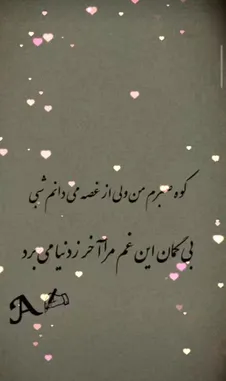 کوه صبرم من ولی از غصه می دانم شبی
بی گمان این غم مرا آخر ز دنیا می برد
A